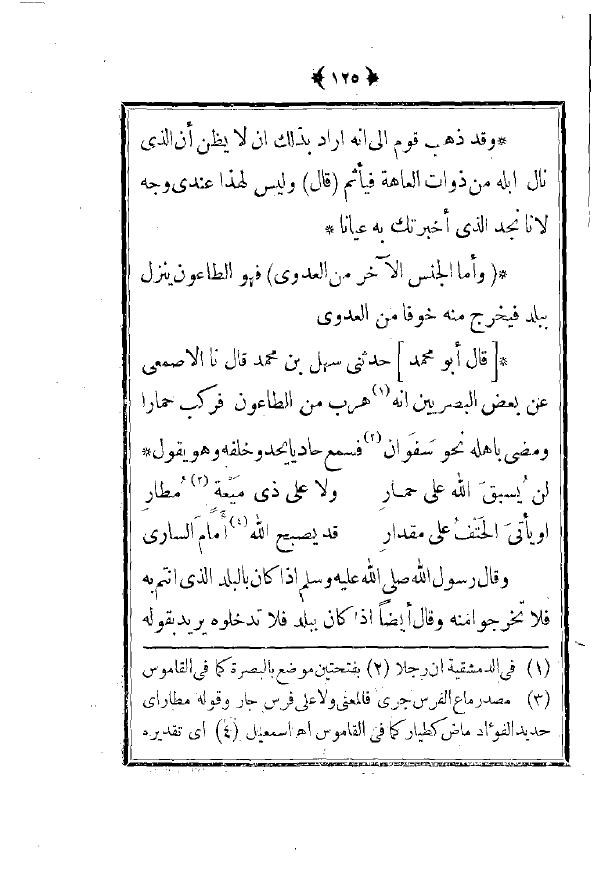 ﴿ ١٢٥ ﴾
*وقد ذهب قوم الى انه اراد بذلك ان لا يظن أن الذى
نال ابله من ذوات العاهة فيأثم (قال) وليس لهذا عندى وجه
لانا نجد الذى أخبرتك به عيانا *
*( وأما الجنس الآخر من العدوى) فهو الطاعون ينزل
ببلد فيخرج منه خوفا من العدوى
*[ قال أبو محمد ] حدثنى سهل بن محمد قال نا الاصمعى
عن بعض البصريين انه (١) هرب من الطاعون فركب حمارا
ومضى باهله نحو سَفَوان (٢) فسمع حاديا يحدو خلفه وهو يقول*
لن يُسبقَ الله على حمارِ ولا على ذى مَيْعة (٣) مُطارِ
او يأتىَ الحَتْفُ على مقدارِ قد يصبح اللهُ (٤) أمامَ السارى
وقال رسول الله صلى الله عليه وسلم اذا كان بالبلد الذى انتم به
فلا تخرجوا منه وقال أيضاً اذا كان ببلد فلا تدخلوه يريد بقوله
(١) فى الدمشقية ان رجلا (٢) بفتحتين موضع بالبصرة كما فى القاموس
(٣) مصدر ماع الفرس جرى فالمعنى ولا على فرس جار وقوله مطار اى
حديد الفؤاد ماض كطيار كما فى القاموس اه اسمعيل (٤) اى تقديره